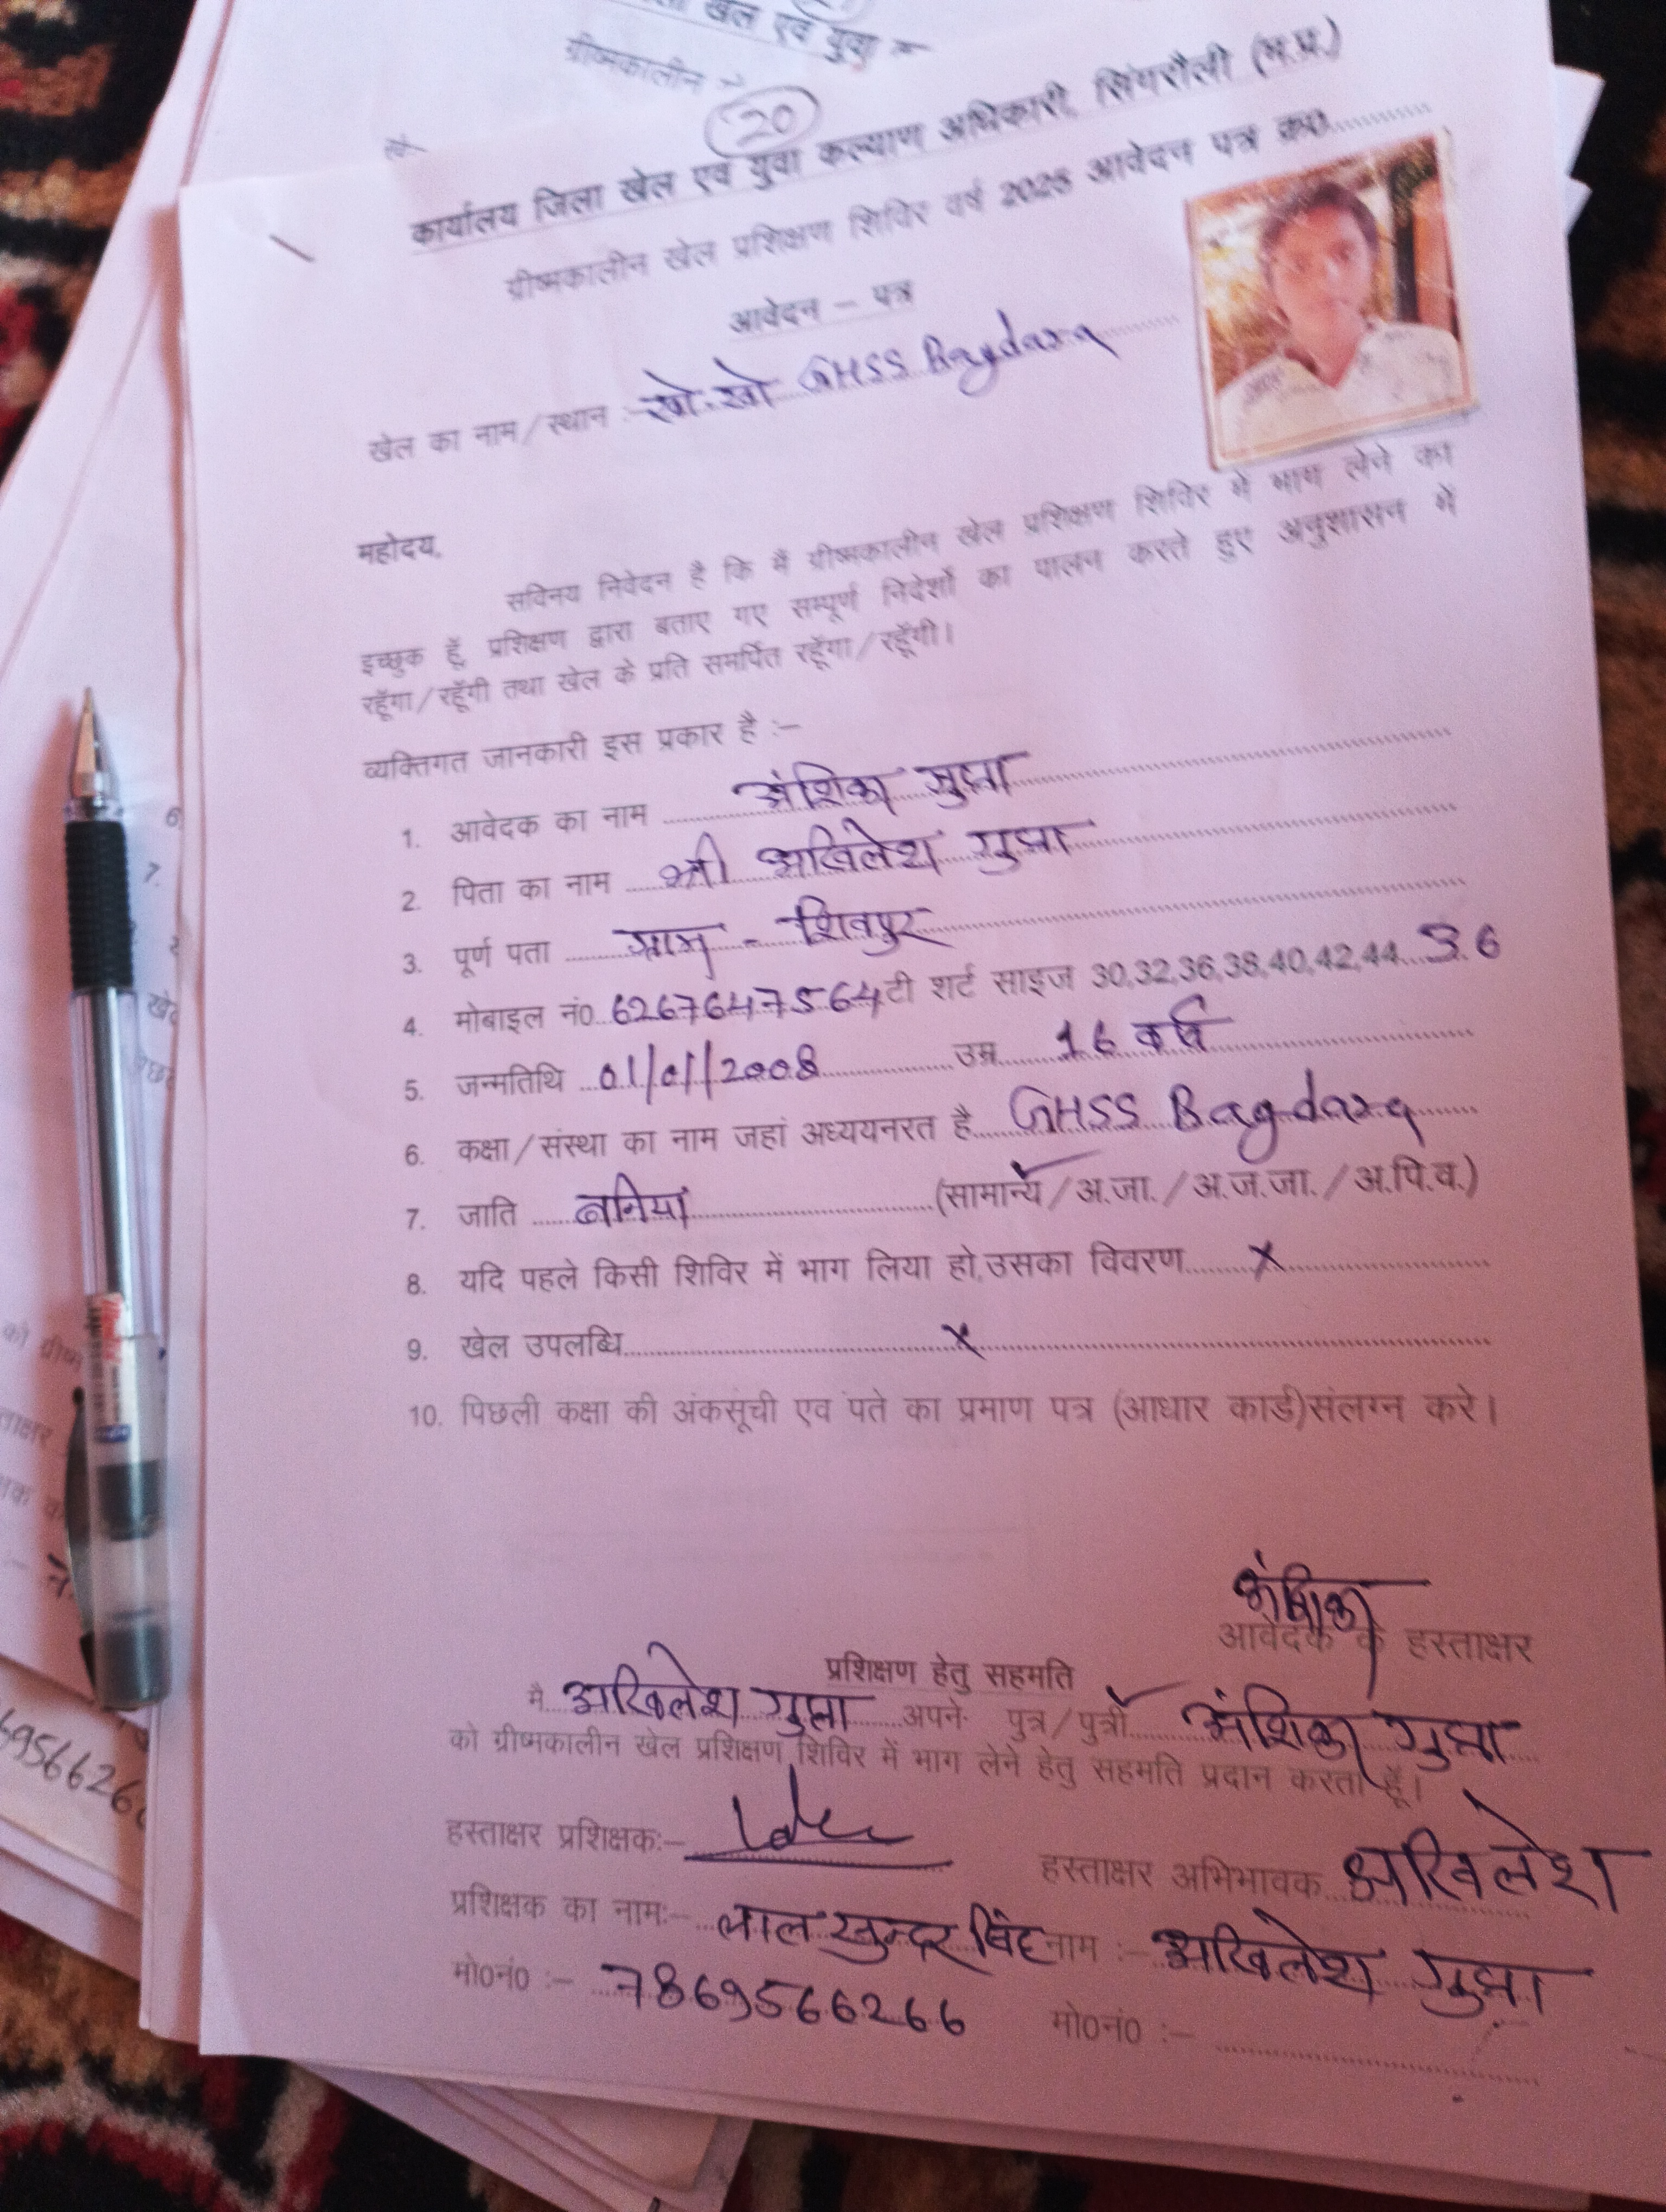 खेल एवं युवा
ग्रीष्मकालीन
20
कार्यालय जिला खेल एवं युवा कल्याण अधिकारी, सिंगरौली (म.प्र.)
ग्रीष्मकालीन खेल प्रशिक्षण शिविर वर्ष 2025 आवेदन पत्र क्र0..............
आवेदन – पत्र
खेल का नाम/स्थान :- खो-खो GHSS Bagdara
महोदय,
सविनय निवेदन है कि मैं ग्रीष्मकालीन खेल प्रशिक्षण शिविर में भाग लेने का
इच्छुक हूँ, प्रशिक्षण द्वारा बताए गए सम्पूर्ण निदेर्शों का पालन करते हुए अनुशासन में
रहूँगा/रहूँगी तथा खेल के प्रति समर्पित रहूँगा/रहूँगी।
व्यक्तिगत जानकारी इस प्रकार है :–
1. आवेदक का नाम अंशिका गुप्ता
2. पिता का नाम श्री अखिलेश गुप्ता
3. पूर्ण पता ग्राम - शिवपुर
4. मोबाइल नं0 6267647564 टी शर्ट साइज 30,32,36,38,40,42,44 36
5. जन्मतिथि 01/01/2008 उम्र 16 वर्ष
6. कक्षा/संस्था का नाम जहां अध्ययनरत है GHSS Bagdara
7. जाति बनिया (सामान्य/अ.जा./अ.ज.जा./अ.पि.व.)
8. यदि पहले किसी शिविर में भाग लिया हो,उसका विवरण x
9. खेल उपलब्धि x
10. पिछली कक्षा की अंकसूंची एव पते का प्रमाण पत्र (आधार कार्ड)संलग्न करे।
अंशिका
आवेदक के हस्ताक्षर
प्रशिक्षण हेतु सहमति
मै अखिलेश गुप्ता अपने पुत्र/पुत्री अंशिका गुप्ता
को ग्रीष्मकालीन खेल प्रशिक्षण शिविर में भाग लेने हेतु सहमति प्रदान करता हूँ।
हस्ताक्षर प्रशिक्षक:– हस्ताक्षर अभिभावक अखिलेश
प्रशिक्षक का नामः– लाल सुन्दर सिंह नाम :– अखिलेश गुप्ता
मो0नं0 :– 7869566266 मो0नं0 :–